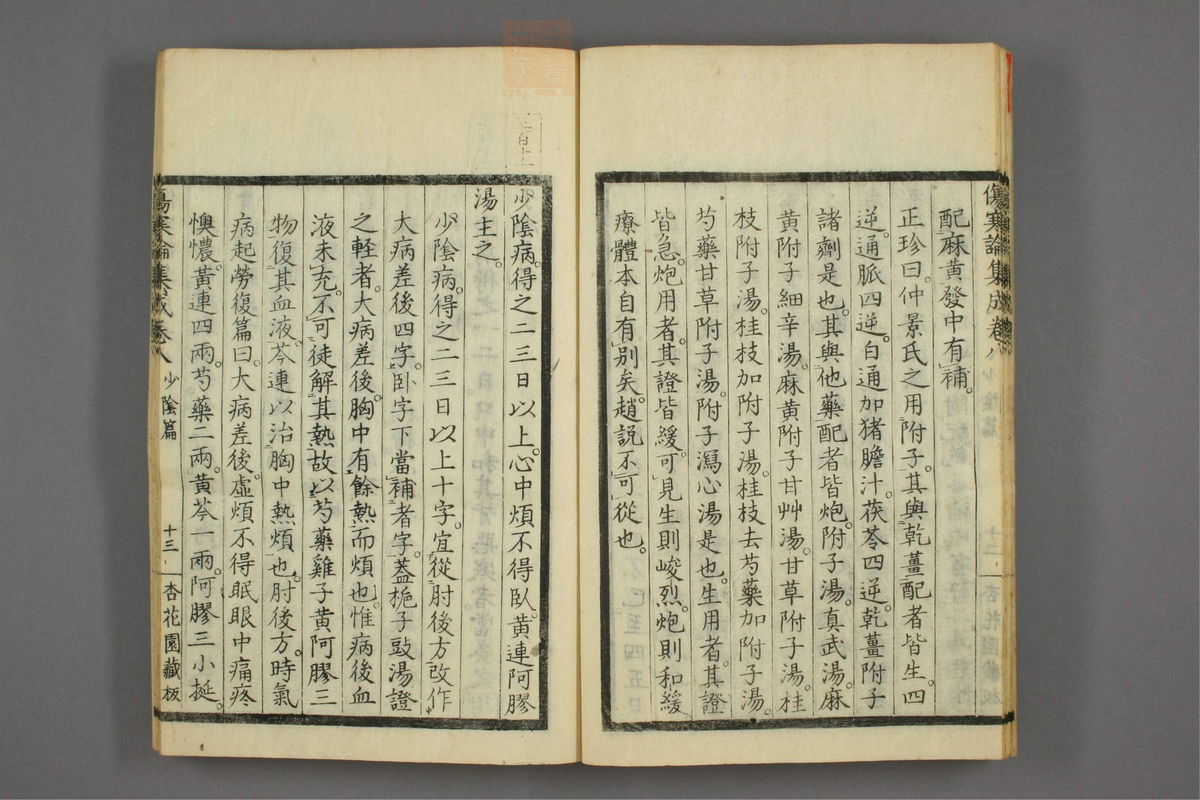 傷寒論集成卷八
配麻黃發中有補。
正珍曰。仲景氏之用附子。其與乾薑配者皆生。四
逆。通脈四逆。白通加猪膽汁。茯苓四逆。乾薑附子
諸劑是也。其與他藥配者皆炮。附子湯。真武湯。麻
黃附子細辛湯。麻黃附子甘艸湯。甘草附子湯。桂
枝附子湯。桂枝加附子湯。桂枝去芍藥加附子湯。
芍藥甘草附子湯。附子瀉心湯是也。生用者。其證
皆急。炮用者。其證皆緩。可見生則峻烈。炮則和緩
療體本自有別矣。趙說不可從也。
少陰病。得之二三日以上。心中煩不得臥。黃連阿膠
湯主之。
少陰病。得之二三日以上十字。宜從肘後方改作
大病差後四字。臥字下當補者字。蓋梔子豉湯證
之輕者。大病差後。胸中有餘熱而煩也。惟病後血
液未充。不可徒解其熱。故以芍藥雞子黃阿膠三
物復其血液。芩連以治胸中熱煩也。肘後方。時氣
病起勞復篇曰。大病差後。虛煩不得眠眼中痛疼
懊憹。黃連四兩。芍藥二兩。黃芩一兩。阿膠三小挺。
傷寒論集成卷八 少陰篇 十三 杏花園藏板